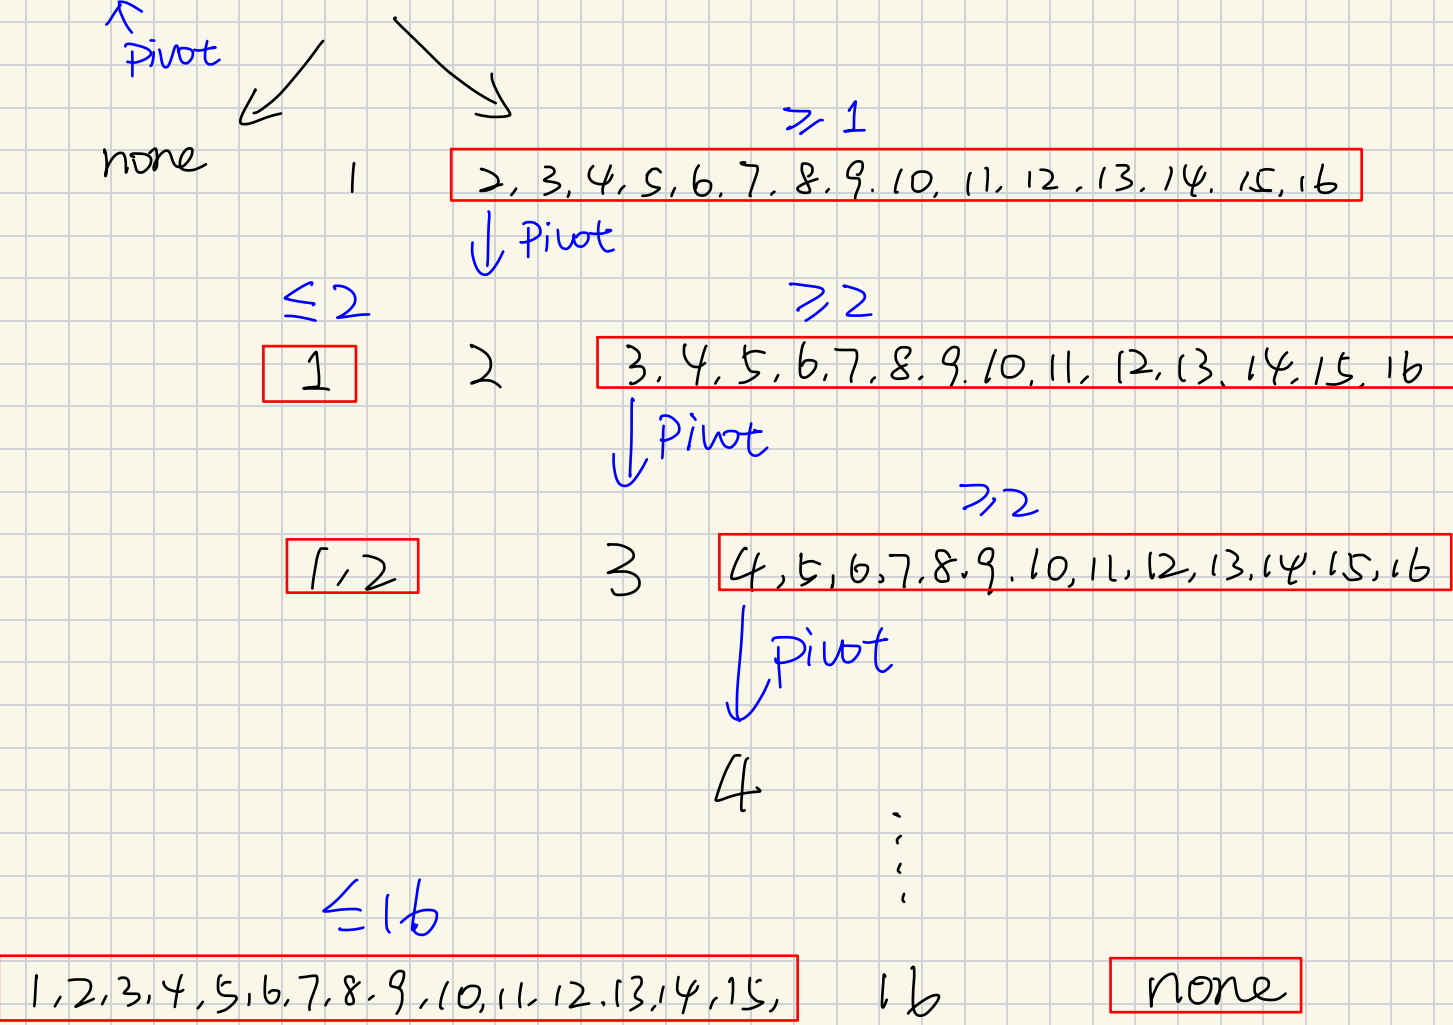 pivot
≥ 1
none 1 2, 3, 4, 5, 6, 7, 8, 9, 10, 11, 12, 13, 14, 15, 16
Pivot
≤ 2 ≥ 2
1 2 3, 4, 5, 6, 7, 8, 9, 10, 11, 12, 13, 14, 15, 16
Pivot
≥ 2
1, 2 3 4, 5, 6, 7, 8, 9, 10, 11, 12, 13, 14, 15, 16
pivot
4
⋮
≤ 16
1, 2, 3, 4, 5, 6, 7, 8, 9, 10, 11, 12, 13, 14, 15, 16 none